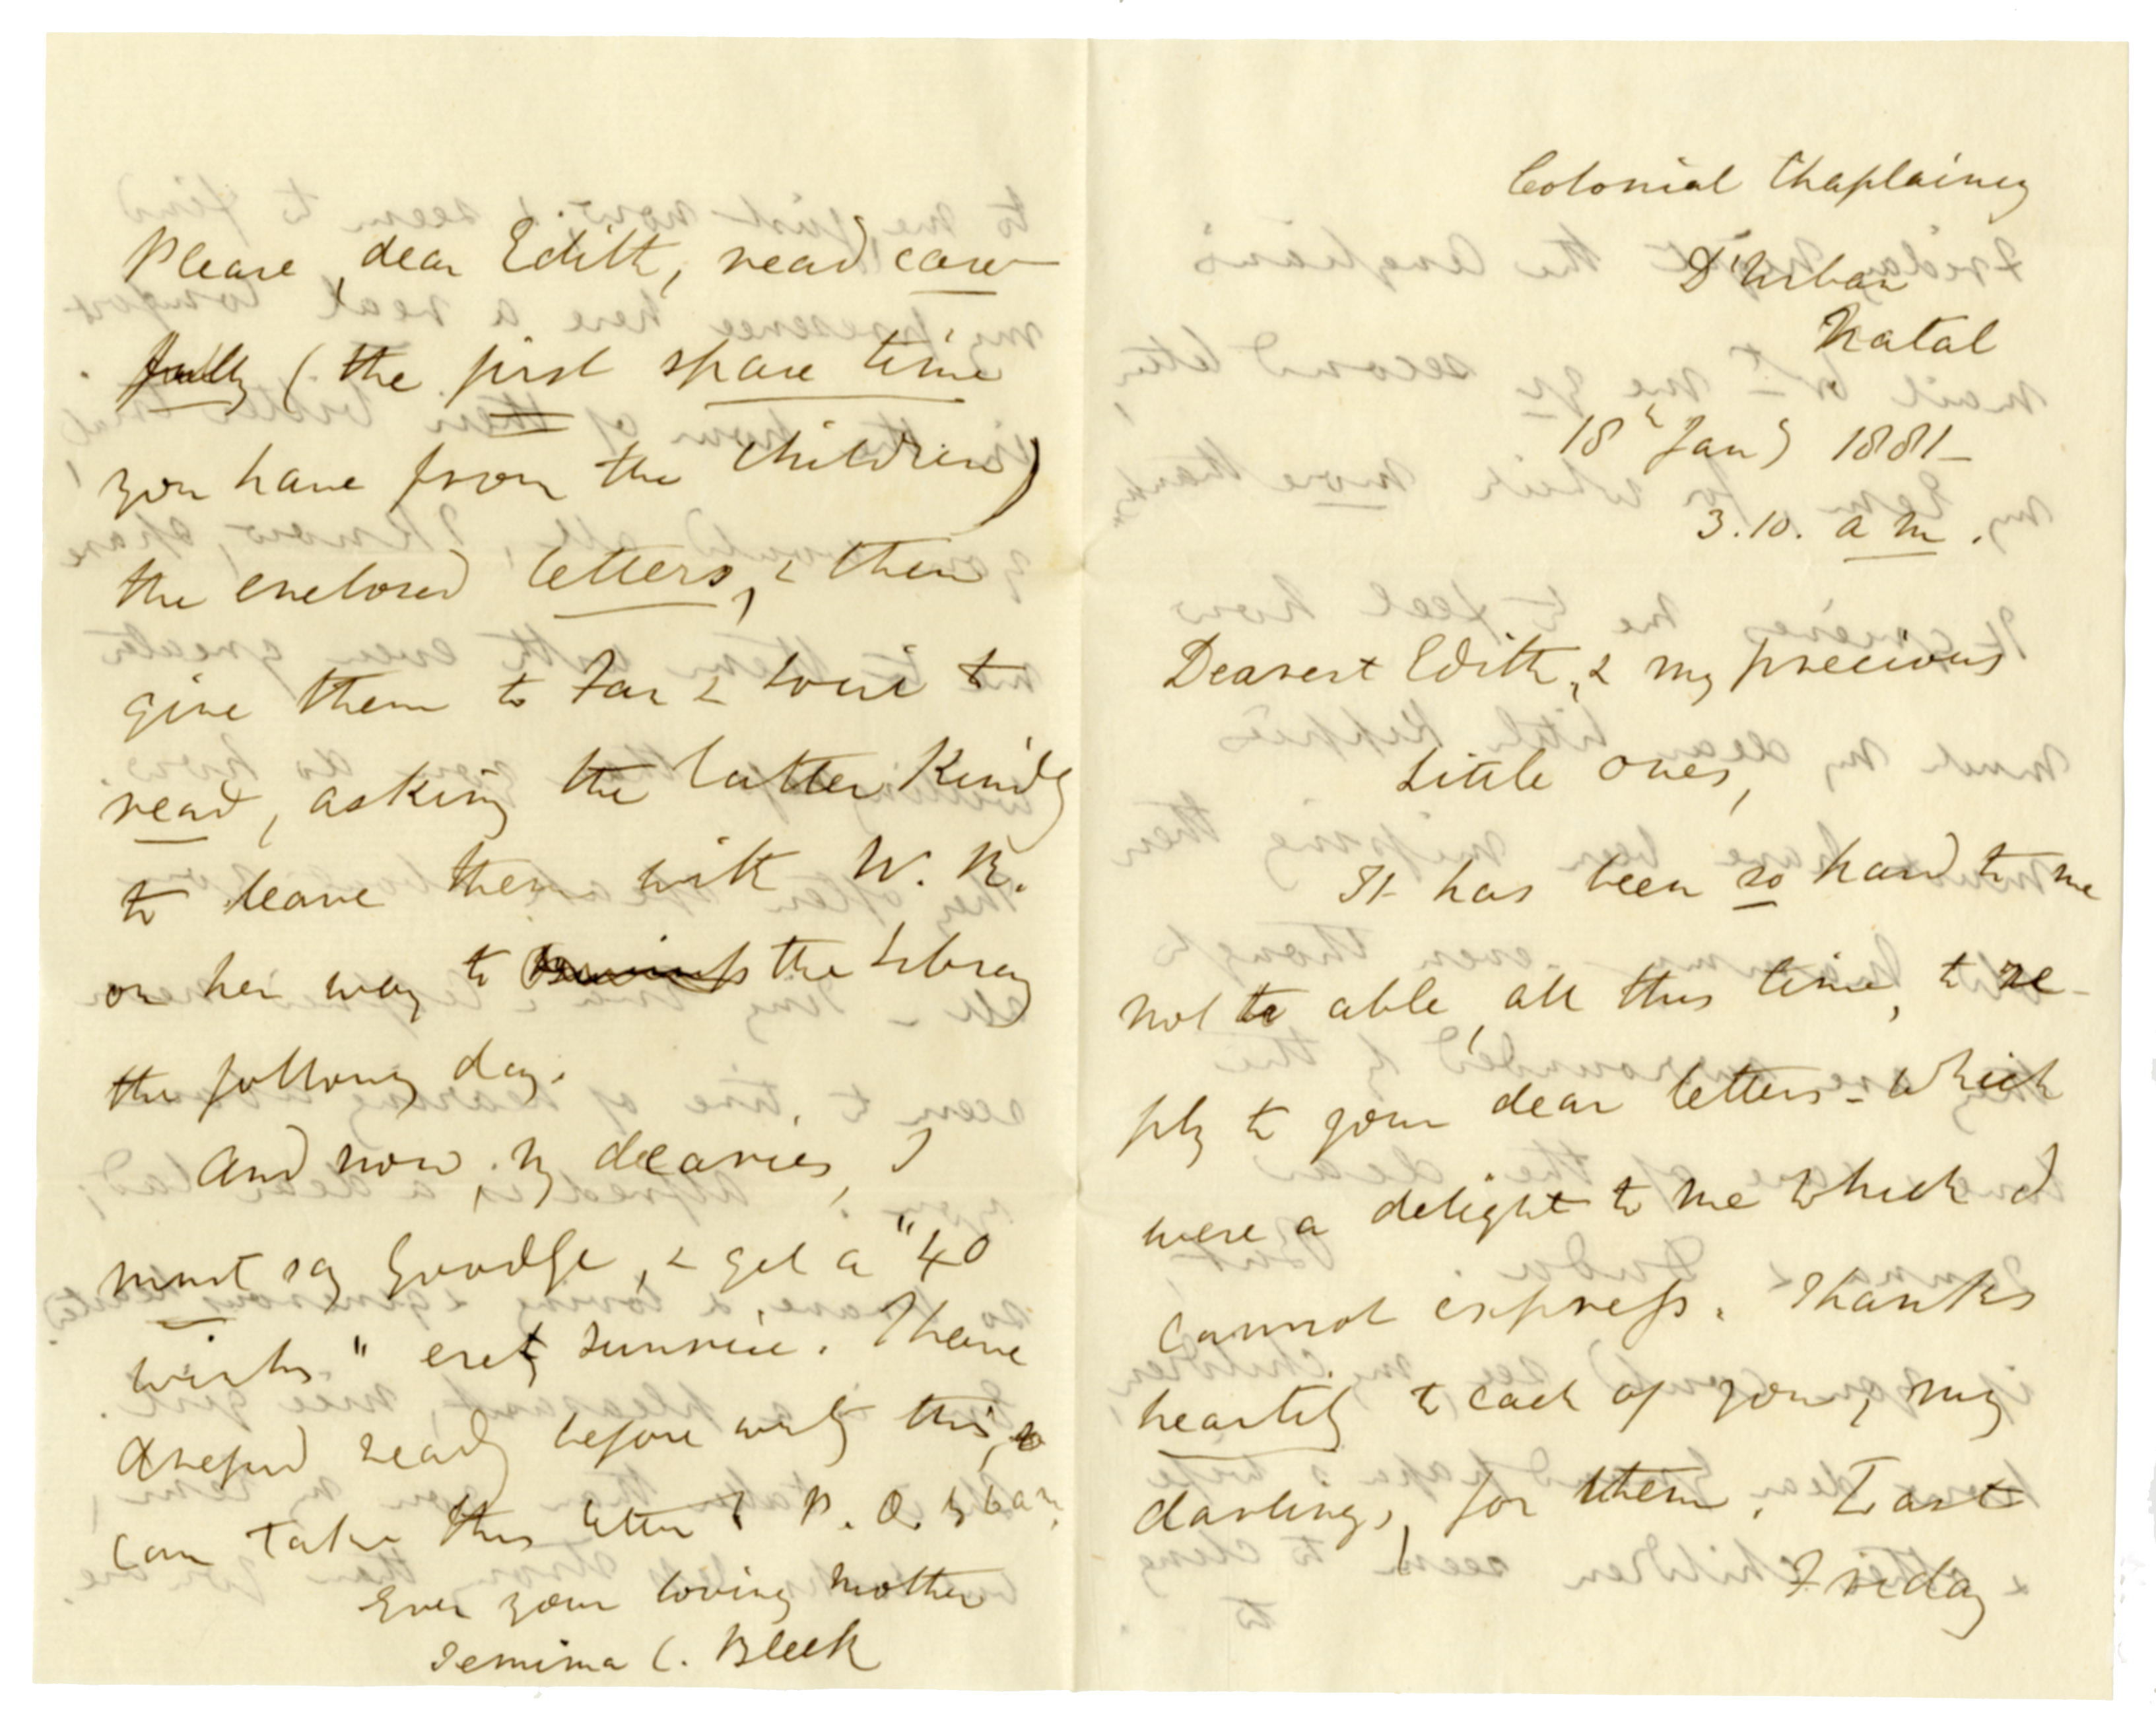 Colonial Chaplaincy
D'Urban
Natal
18th Jany 1881 –
3.10. a m.
Dearest Edith, & my precious
little ones,
It has been so hard to me
not to able, all this time, to re-
ply to your dear letters – which
were a delight to me which I
cannot express. Thanks
heartily to each of you, my
darlings, for them. Last
Friday
Please, dear Edith, read care-
fully (the first spare time
you have from the children)
the enclosed letters, & then
give them to Fan & to
read, asking the latter kindly
to leave them with W. R.
on her way to the Library
the following day.
And now, my dearies, I
must say Goodbye, & get a "40
winks" ere sunrise. I have
dressed ready before writg this, so
can take this letter to P. O. by 6 a m.
Ever your loving Mother
Jemima C. Bleek